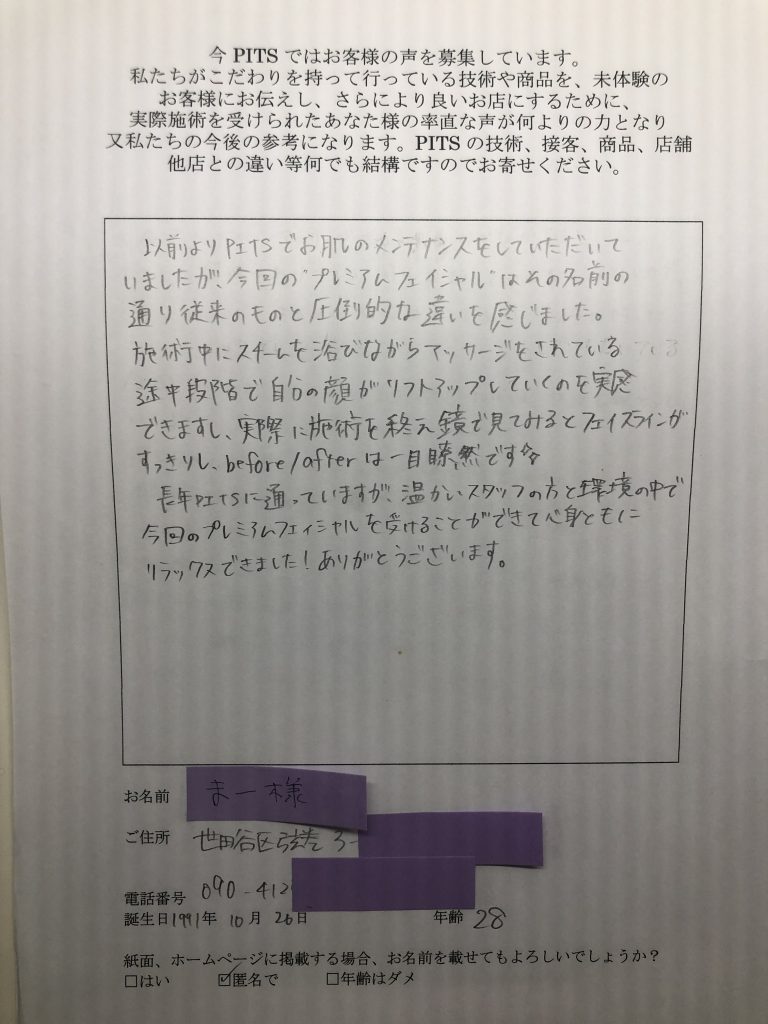 今 PITS ではお客様の声を募集しています。
私たちがこだわりを持って行っている技術や商品を、未体験の
お客様にお伝えし、さらにより良いお店にするために、
実際施術を受けられたあなた様の率直な声が何よりの力となり
又私たちの今後の参考になります。PITS の技術、接客、商品、店舗
他店との違い等何でも結構ですのでお寄せください。
以前よりPITSでお肌のメンテナンスをしていただいて
いましたが、今回の"プレミアムフェイシャル"はその名前の
通り従来のものと圧倒的な違いを感じました。
施術中にスチームを浴びながらマッサージをされている
途中段階で自分の顔がリフトアップしていくのを実感
できますし、実際に施術を終え鏡で見てみるとフェイスラインが
すっきりし、before/afterは一目瞭然です☆
長年PITSに通っていますが、温かいスタッフの方と環境の中で
今回のプレミアムフェイシャルを受けることができて心身ともに
リラックスできました!ありがとうございます。
お名前 まー様
ご住所 世田谷区弦巻 3-
電話番号 090-412
誕生日1991年 10月 26日 年齢 28
紙面、ホームページに掲載する場合、お名前を載せてもよろしいでしょうか?
□はい ☑匿名で □年齢はダメ